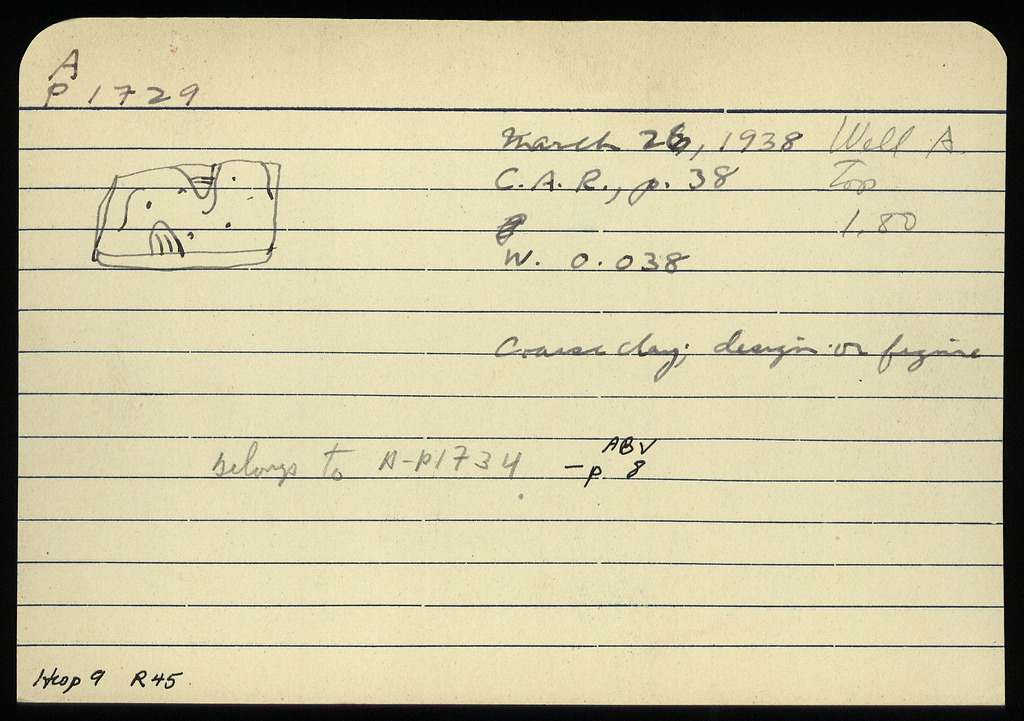 A
P 1729
March 26, 1938 Well A.
C.A.R., p. 38 Top
1.80
W. 0.038
Coarse clay; design or figure
belongs to A-P1734 - ABV
p. 8
9 R45